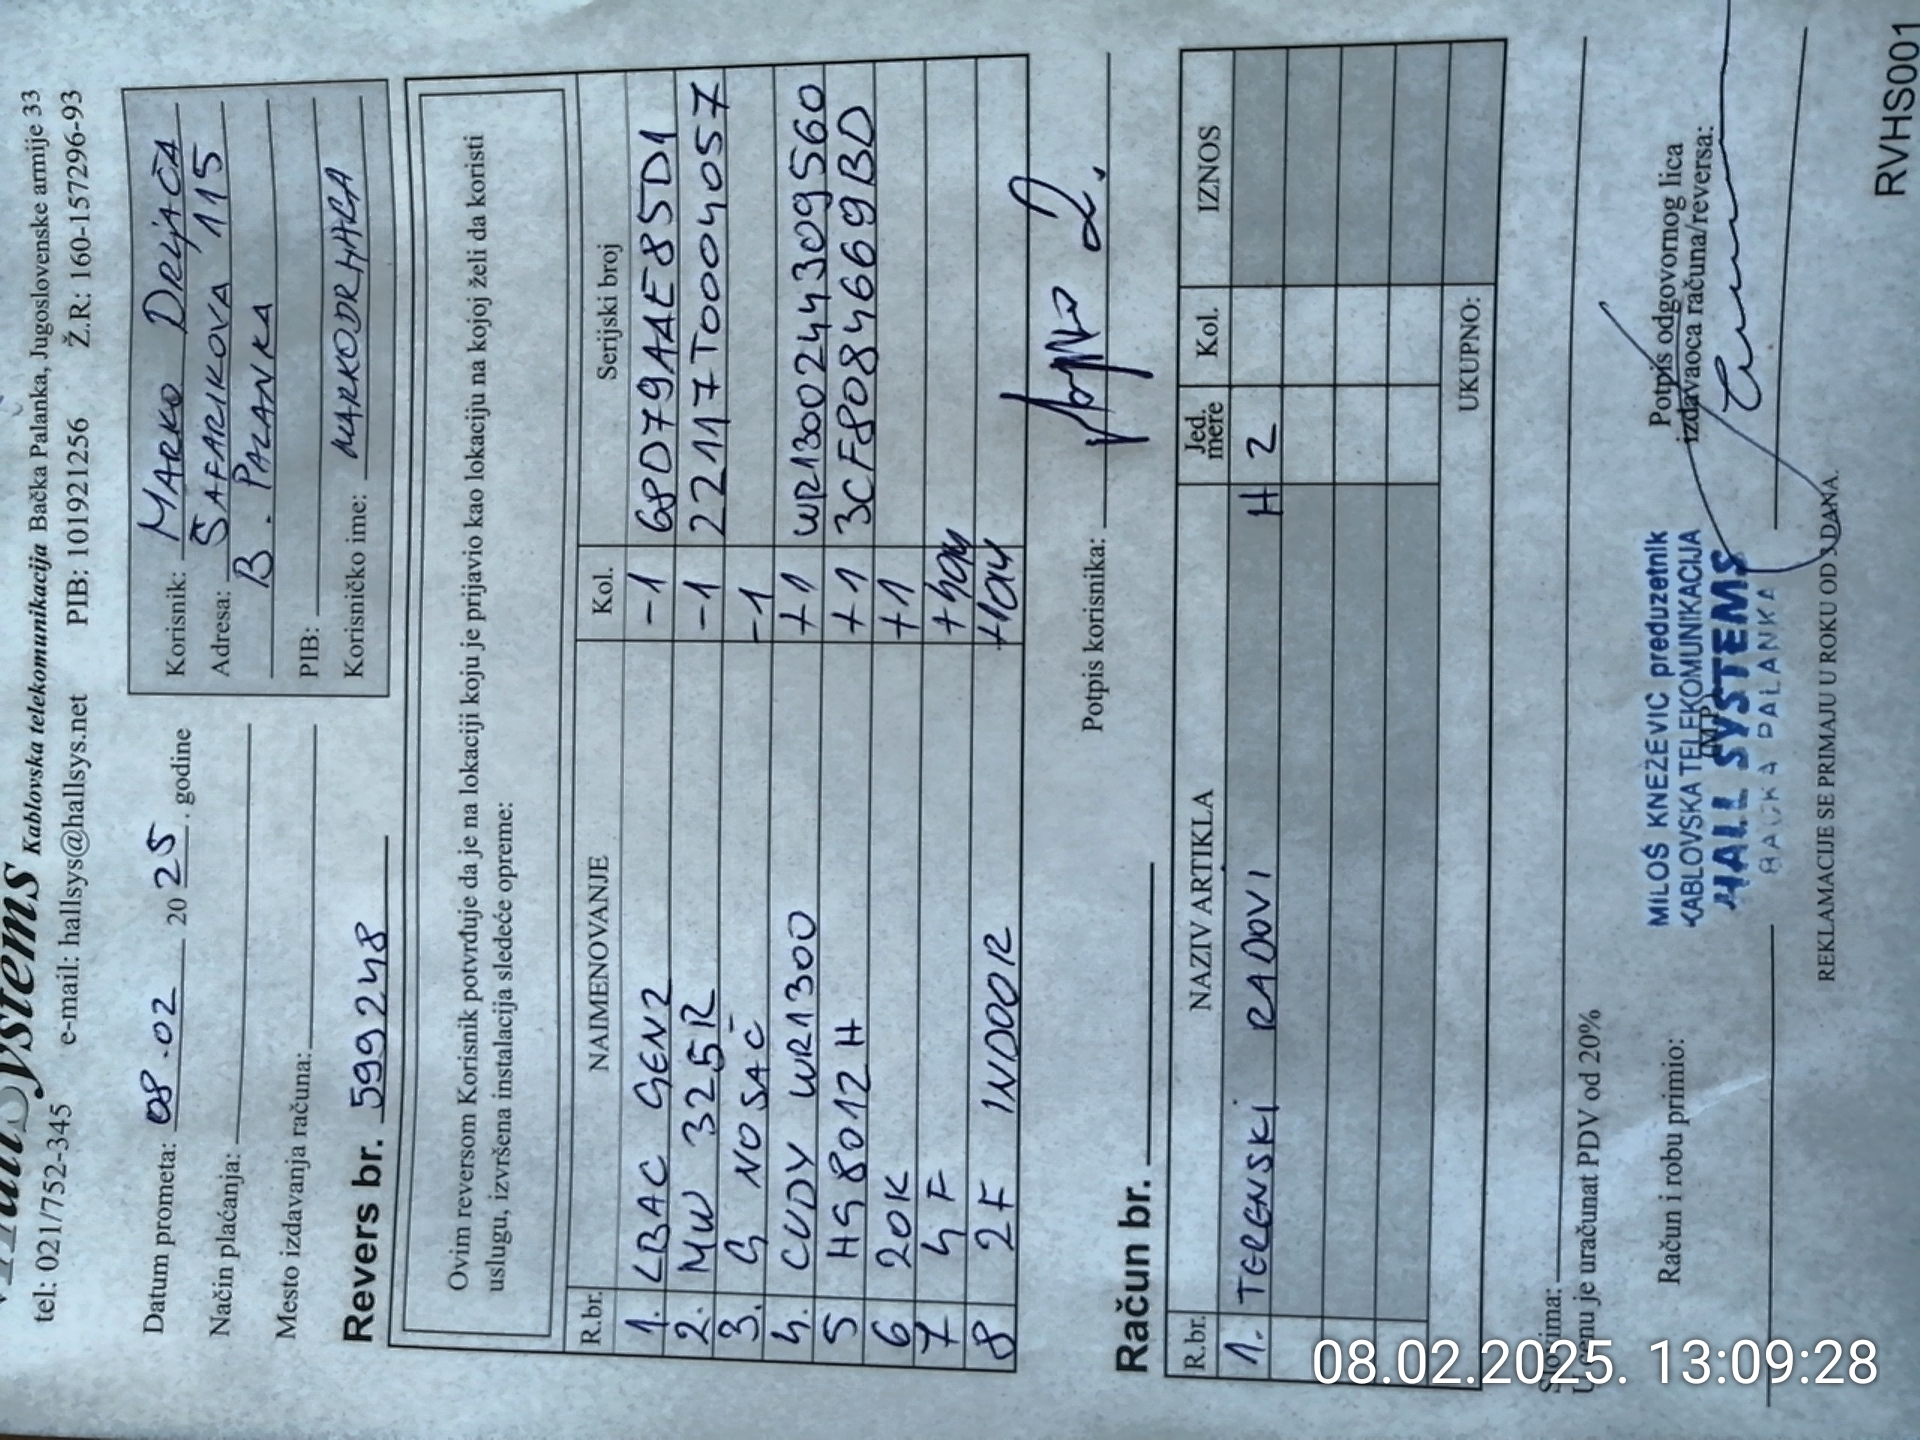 Systems Kablovska telekomunikacija Bačka Palanka, Jugoslovenske armije 33
tel: 021/752-345 e-mail: hallsys@hallsys.net PIB: 101921256 Ž.R: 160-157296-93
Datum prometa: 08.02 20 25. godine
Način plaćanja:
Mesto izdavanja računa:
Revers br. 599248
Korisnik: MARKO DRLJAČA
Adresa: ŠAFARIKOVA 115
B. PALANKA
PIB:
Korisničko ime:
Ovim reversom Korisnik potvrđuje da je na lokaciji koju je prijavio kao lokaciju na kojoj želi da koristi
uslugu, izvršena instalacija sledeće opreme:
R.br. NAIMENOVANJE Kol. Serijski broj
1. LBAC GEN2 -1 68D79AAE85D1
2. MW 325R -1 22117T0004057
3. G NOSAČ -1
4. CUDY WR1300 +1 WR1300244309560
5 HG8012H +1 3CF8084669BD
6 20K +1
7 4F
8 2F INDOOR
Potpis korisnika:
Račun br.
R.br. NAZIV ARTIKLA Jed. mere Kol. IZNOS
1. TERENSKI RADOVI H 2
UKUPNO:
Slovima:
U cenu je uračunat PDV od 20%
Račun i robu primio:
MILOŠ KNEŽEVIĆ preduzetnik
KABLOVSKA TELEKOMUNIKACIJA
HALL SYSTEMS
BAČKA PALANKA
M.P.
Potpis odgovornog lica
izdavaoca računa/reversa:
REKLAMACIJE SE PRIMAJU U ROKU OD 3 DANA.
RVHS001
08.02.2025. 13:09:28